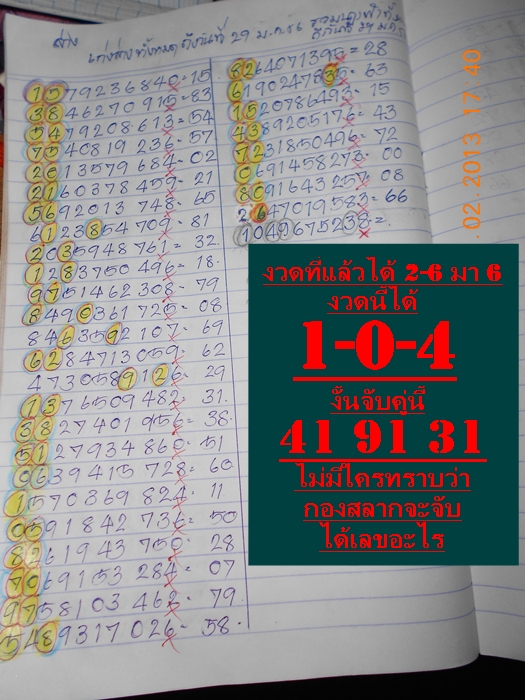 ล่าง
เก่งล่าง ทั้งหมด ถึงวันที่ 29 ม.ค. 56
1579236840 = 15
3846270915 = 83
5479208613 = 54
7540819236 = 57
2013579684 = 02
2160378459 = 21
5692013748 = 65
6123854709 = 81
2035948761 = 32.
1283750496 = 18.
9751462308 = 79
8490361725 = 08
8463592107 = 69
6284713059 = 62
4730589126 = 29
1376509482 = 31.
3827401956 = 38.
5127934860 = 51
0639415728 = 60
1570369824 = 11
0591842736 = 50
8261943750 = 28
7069153284 = 07
9758103462 = 79
5489317026 = 58.
8264071395 = 28
6190247835 = 63
1520786493 = 15
4389205176 = 43
7231850496 = 72
0691458273 = 00
8091643257 = 08
2647019583 = 66
1049675238 =
.02.2013 17:40
งวดที่แล้วได้ 2-6 มา 6
งวดนี้ได้
1-0-4
งั้นจับคู่นี้
41 91 31
ไม่มีใครทราบว่า
กองสลากจะจับ
ได้เลขอะไร